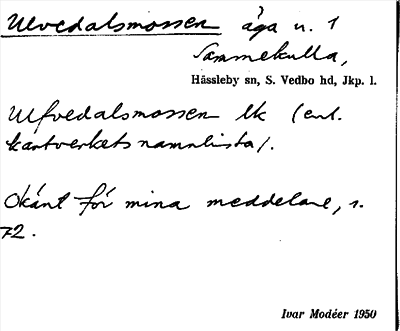 Ulvedalsmossen äga n. 1
Sammekulla,
Hässleby sn, S. Vedbo hd, Jkp. l.
Ulfvedalsmossen lk (enl.
kartverkets namnlista).
Okänt för mina meddelare, s.
72.
Ivar Modéer 1950